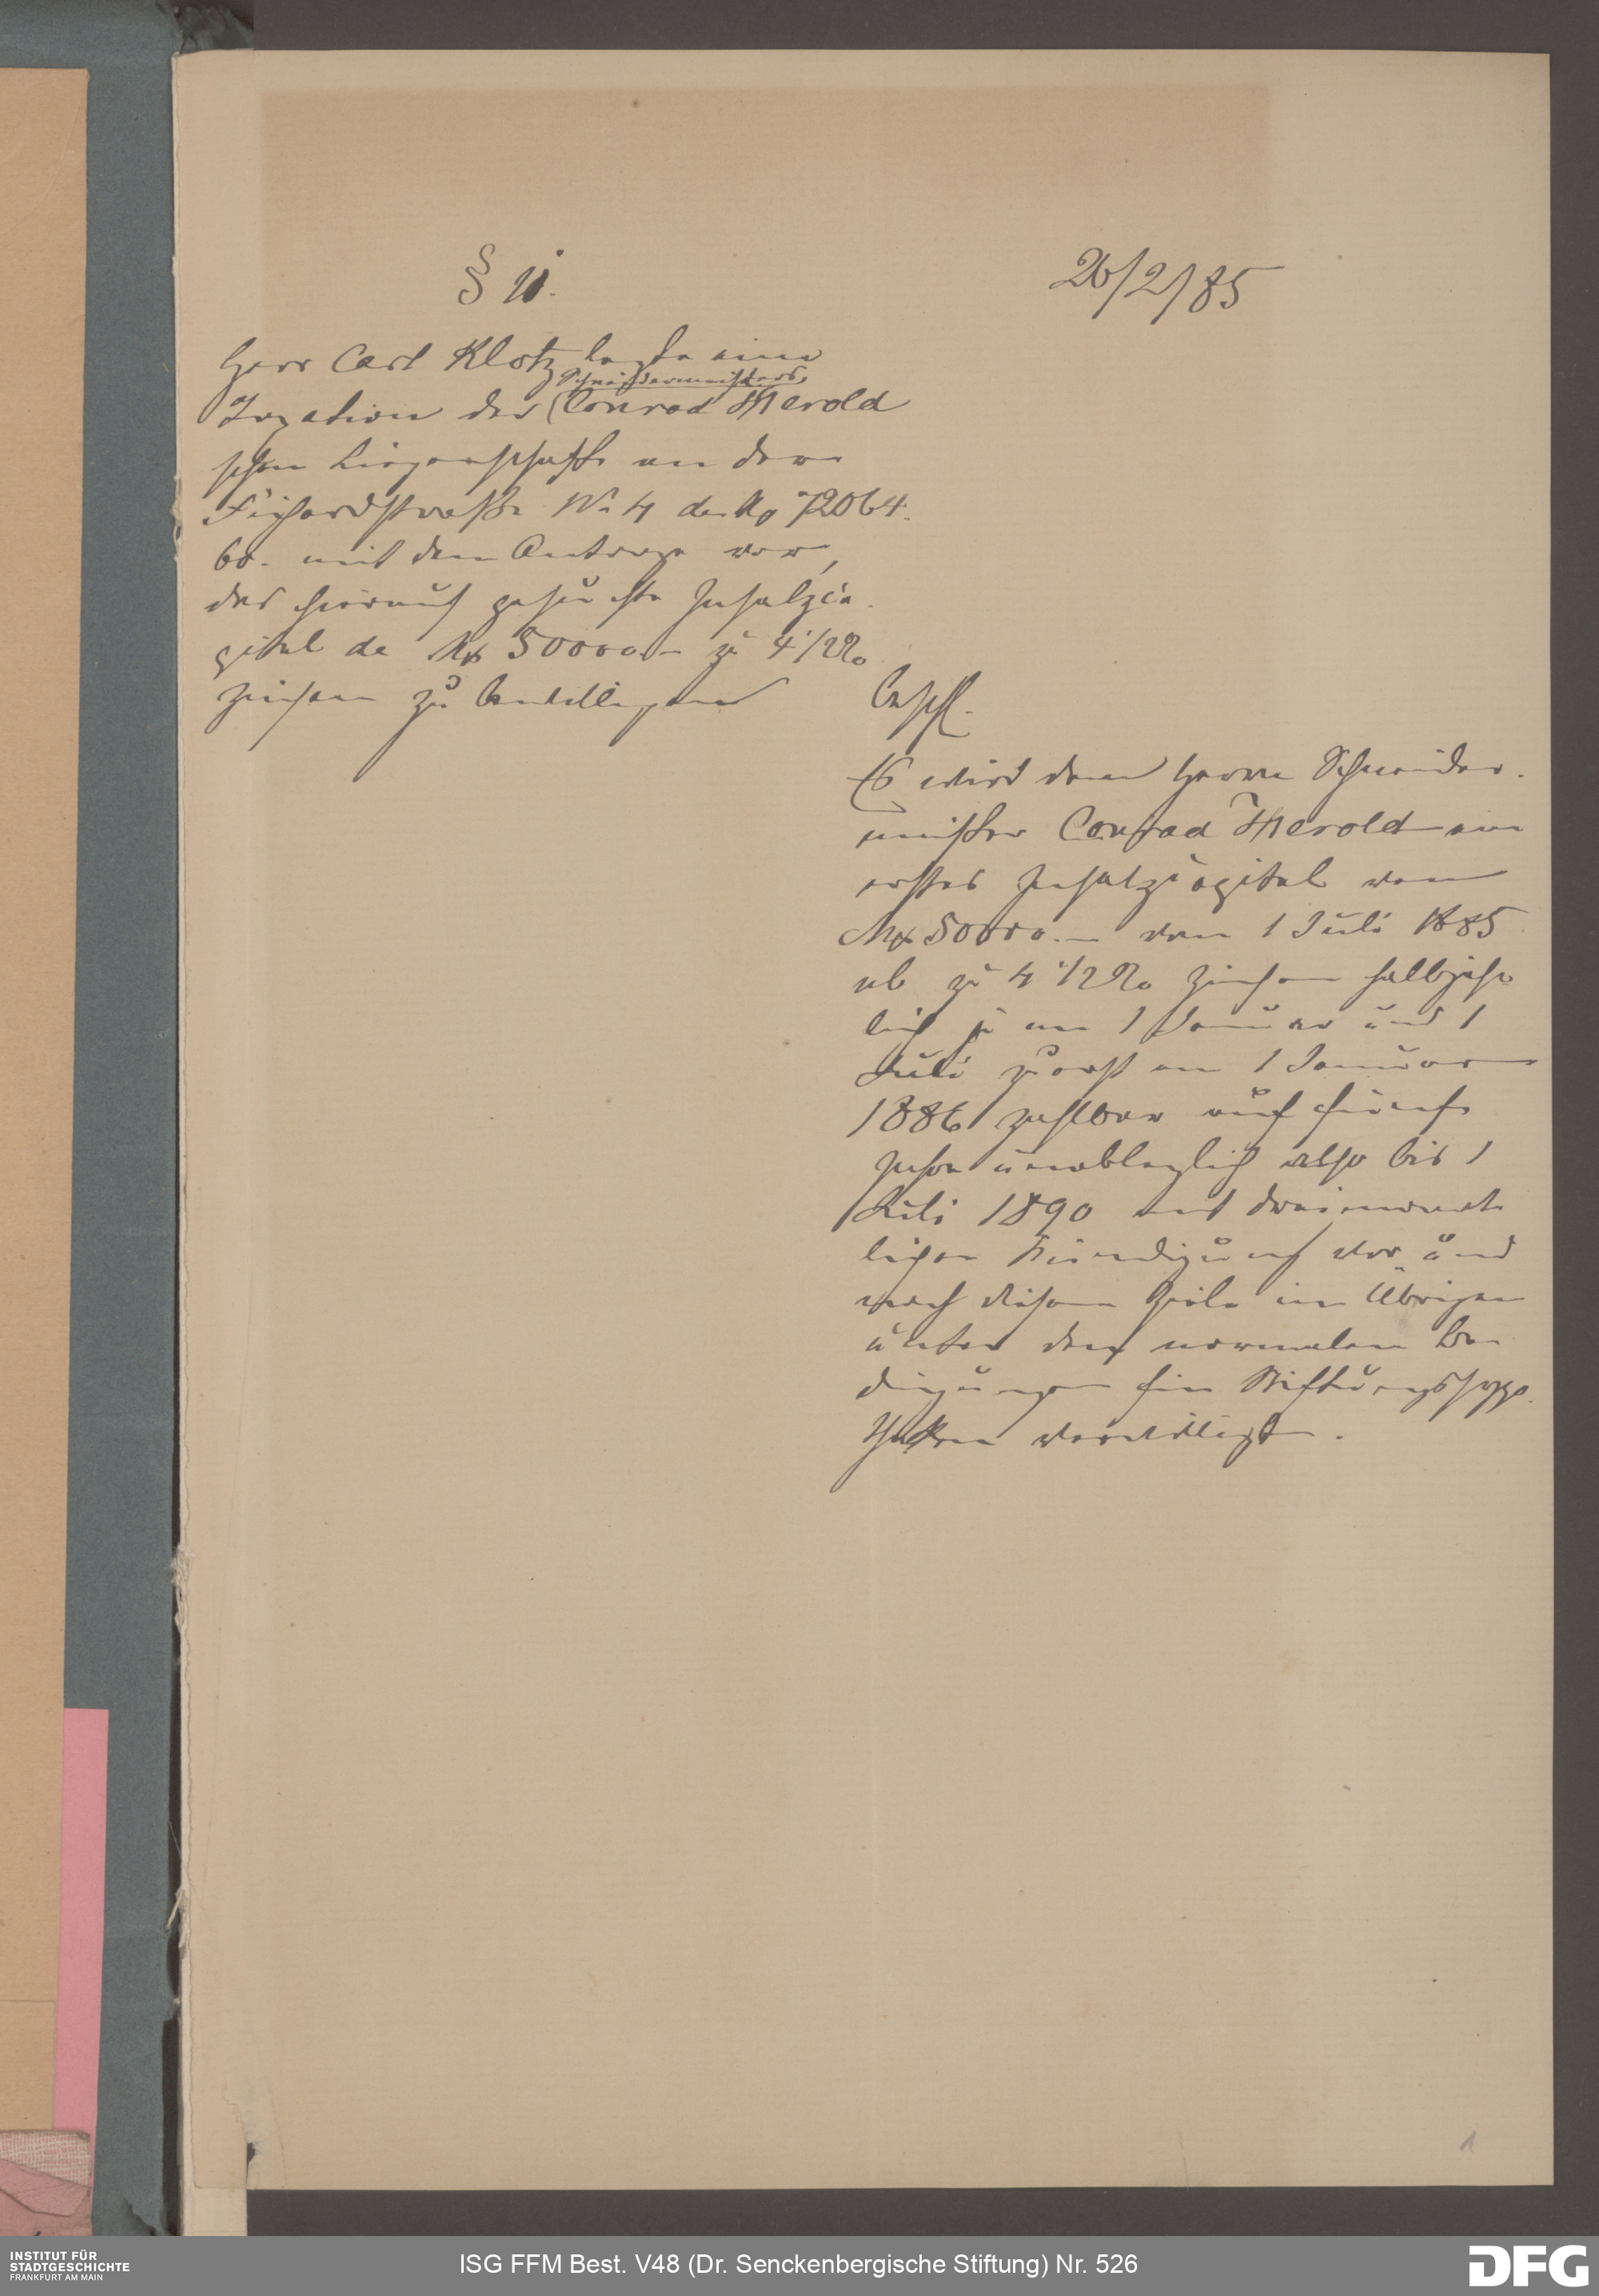 § 11.
26/2/85
Herr Carl Klotz legte eine
Schneidermeisters
Taxation der Conrad Herold
schen Liegenschaft an der
Fichardstraße No 4 de Mk 72064.
60. mit dem Antrage vor,
das hierauf gesuchte Insatzca
pital de Mk 50000.- zu 4 1/2 %
Zinsen zu bewilligen
Beschl.
Es wird dem Herrn Schneider-
meister Conrad Herold ein
erstes Insatzcapital von
Mk 50000.- vom 1 Juli 1885
ab zu 4 1/2 % Zinsen halbjähr
lich je am 1 Januar und 1
Juli zuerst am 1 Januar
1886 zahlbar auf fünf
Jahre unableglich also bis 1
Juli 1890 mit dreimonat
licher Kündigung vor und
nach diesem Ziele im Übrigen
unter den normalen Be
dingungen für Stiftungshypo-
theken verwilligt.
1
INSTITUT FÜR
STADTGESCHICHTE
FRANKFURT AM MAIN
ISG FFM Best. V48 (Dr. Senckenbergische Stiftung) Nr. 526
DFG